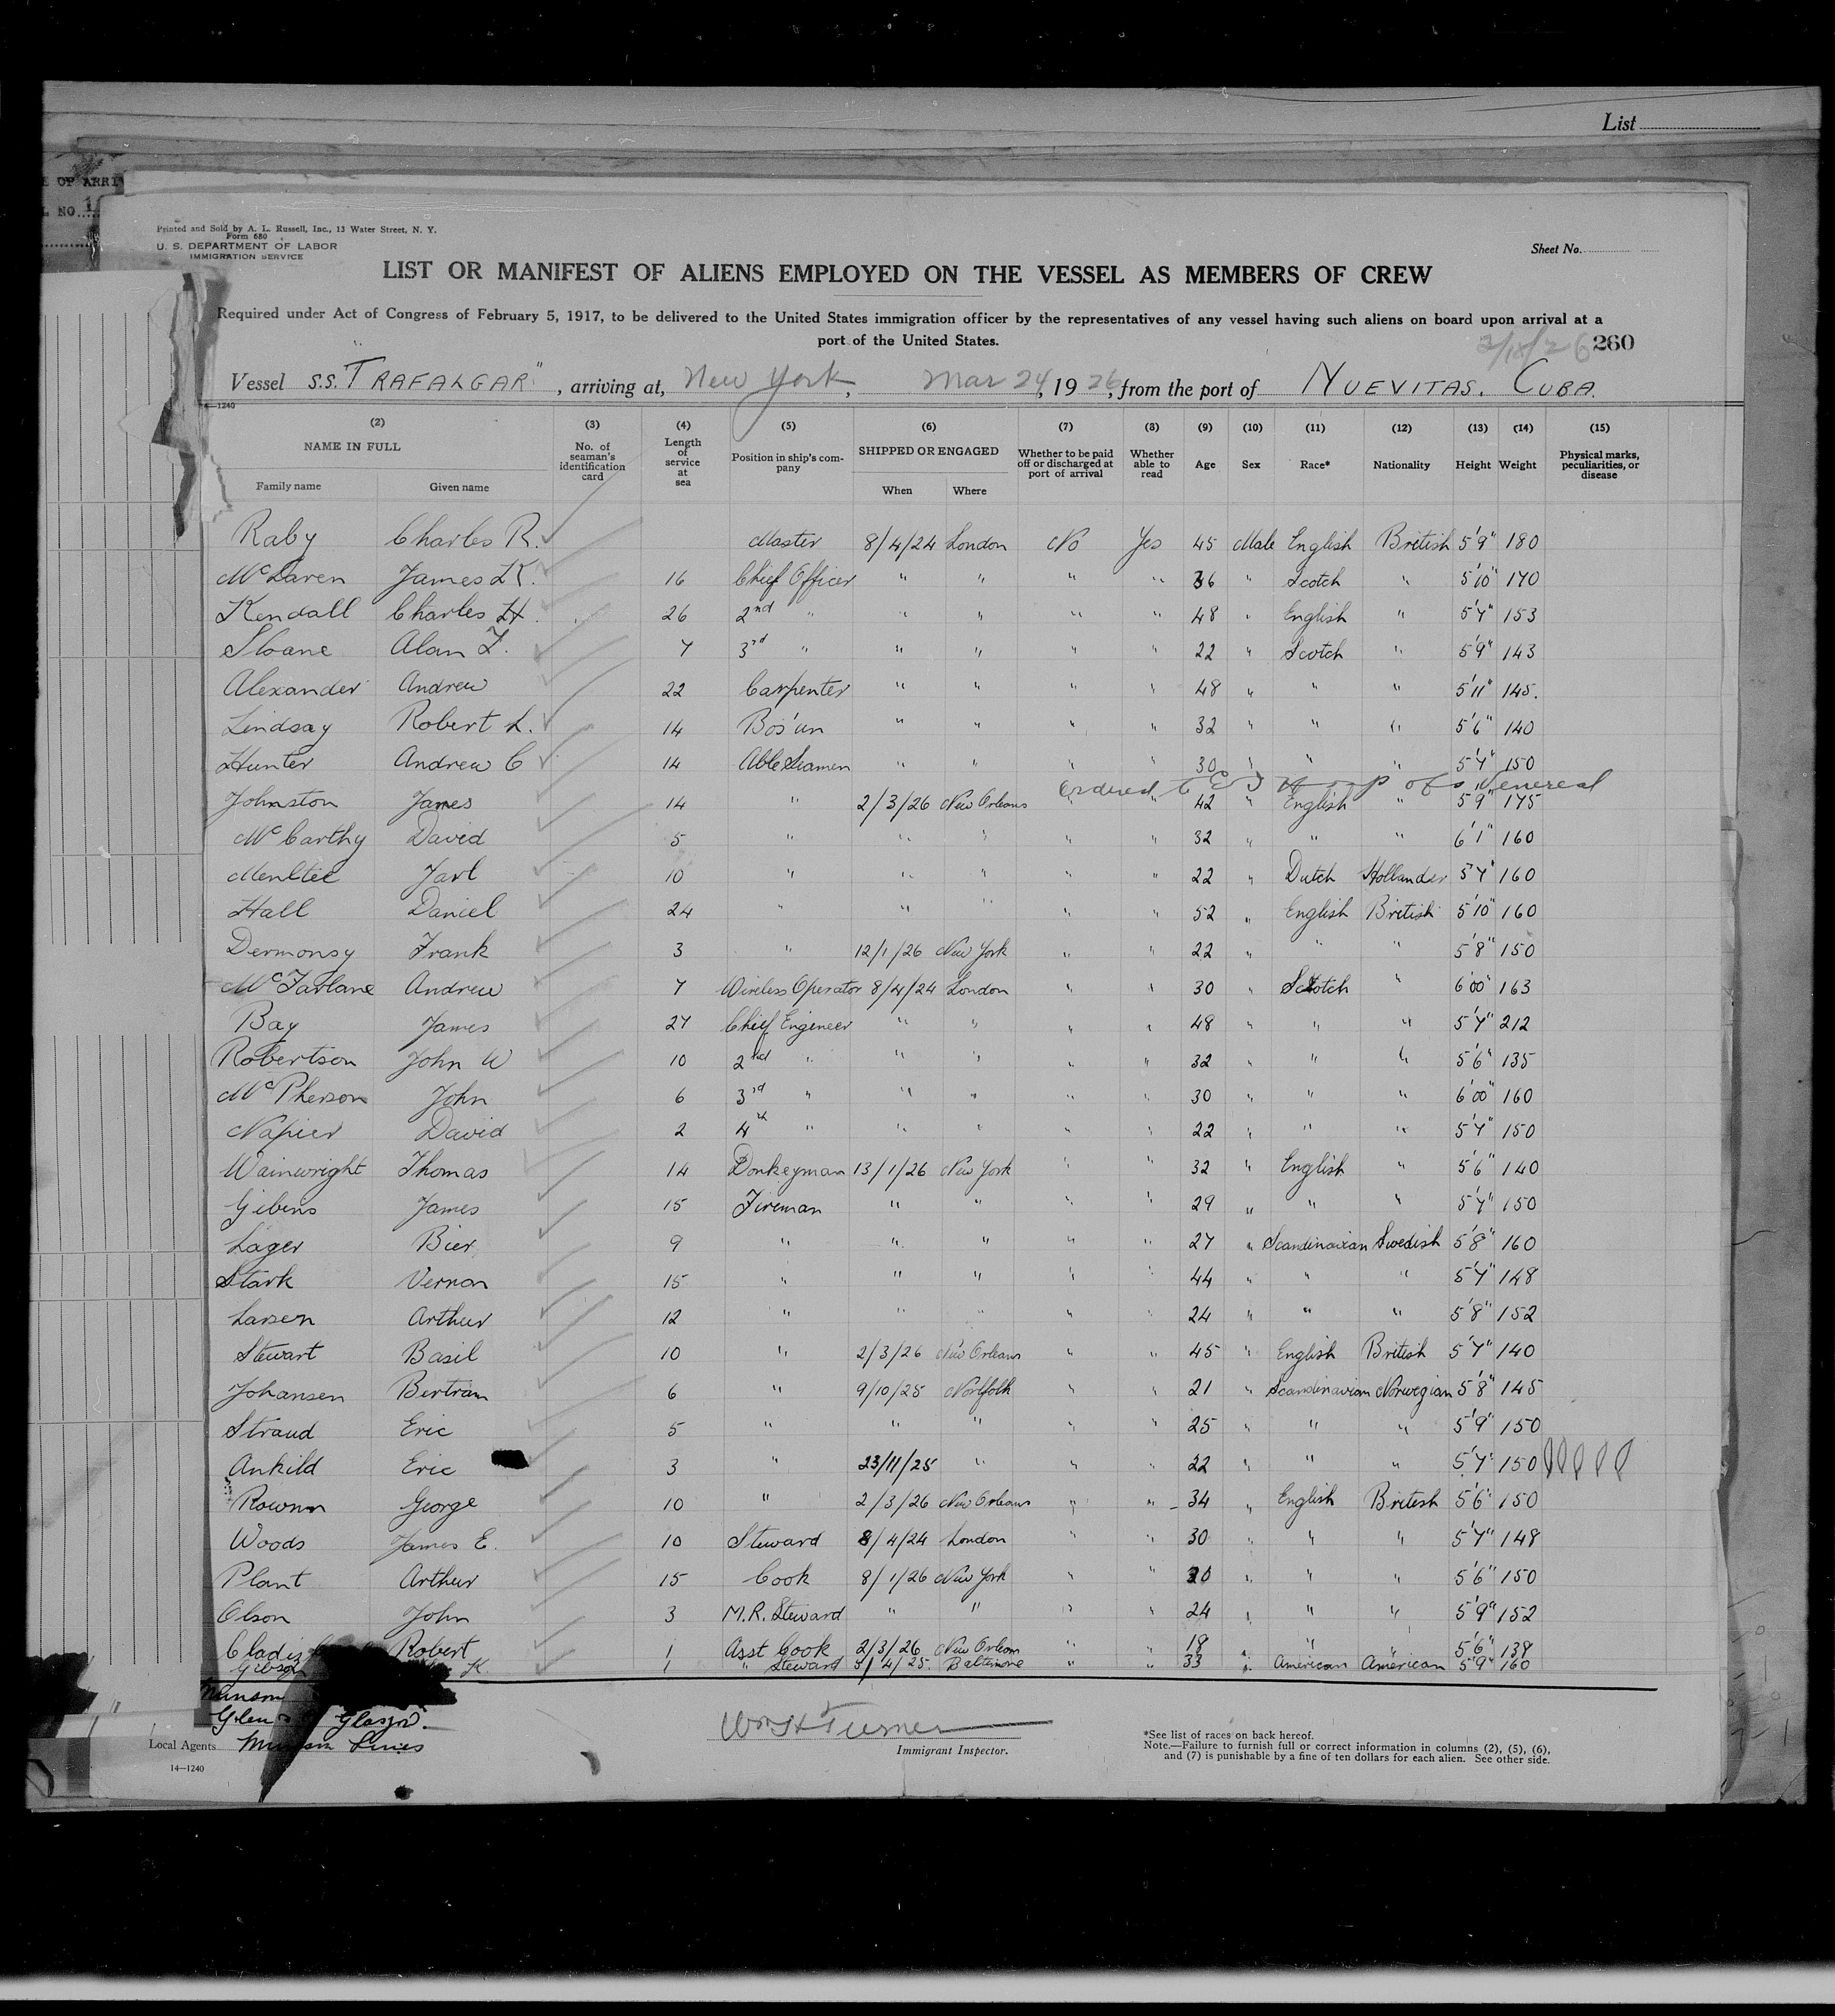 List
E OF ARRIV
L NO. 1
Printed and Sold by A. L. Russell, Inc., 13 Water Street, N. Y.
Form 680
U. S. DEPARTMENT OF LABOR
IMMIGRATION SERVICE
Sheet No.
LIST OR MANIFEST OF ALIENS EMPLOYED ON THE VESSEL AS MEMBERS OF CREW
Required under Act of Congress of February 5, 1917, to be delivered to the United States immigration officer by the representatives of any vessel having such aliens on board upon arrival at a
port of the United States.
260
Vessel S.S. "TRAFALGAR", arriving at, New York, Mar 24, 1926, from the port of NUEVITAS. CUBA.
14—1240
(2) (3) (4) (5) (6) (7) (8) (9) (10) (11) (12) (13) (14) (15)
NAME IN FULL No. of seaman's identification card Length of service at sea Position in ship's company SHIPPED OR ENGAGED Whether to be paid off or discharged at port of arrival Whether able to read Age Sex Race* Nationality Height Weight Physical marks, peculiarities, or disease
Family name Given name When Where
Raby Charles R. Master 8/4/24 London No Yes 45 Male English British 5'9" 180
McLaren James K. 16 Chief Officer " " " " 36 " Scotch " 5'10" 170
Kendall Charles H. 26 2nd " " " " " 48 " English " 5'7" 153
Sloane Alan F. 7 3rd " " " " " 22 " Scotch " 5'9" 143
Alexander Andrew 22 Carpenter " " " " 48 " " " 5'11" 145.
Lindsay Robert L. 14 Bos'un " " " " 32 " " " 5'6" 140
Hunter Andrew C 14 Able Seamen " " " " 30 " " " 5'7" 150
Ordered to venereal
Johnston James 14 " 2/3/26 New Orleans " " 42 " English " 5'9" 175
McCarthy David 5 " " " " " 32 " " " 6'1" 160
Jarl 10 " " " " " 22 " Dutch Hollander 5'7" 160
Hall Daniel 24 " " " " " 52 " English British 5'10" 160
Dermonsy Frank 3 " 12/1/26 New York " " 22 " " " 5'8" 150
McFarlane Andrew 7 Wireless Operator 8/4/24 London " " 30 " Scotch " 6'00" 163
Bay James 27 Chief Engineer " " " " 48 " " " 5'7" 212
Robertson John W 10 2nd " " " " " 32 " " " 5'6" 135
McPherson John 6 3rd " " " " " 30 " " " 6'00" 160
Napier David 2 4th " " " " " 22 " " " 5'7" 150
Wainwright Thomas 14 Donkeyman 13/1/26 New York " " 32 " English " 5'6" 140
Gibens James 15 Fireman " " " " 29 " " " 5'7" 150
Lager Bier 9 " " " " " 27 " Scandinavian Swedish 5'8" 160
Stark Vernon 15 " " " " " 44 " " " 5'7" 148
Larsen Arthur 12 " " " " " 24 " " " 5'8" 152
Stewart Basil 10 " 2/3/26 New Orleans " " 45 " English British 5'7" 140
Johansen Bertram 6 " 9/10/25 Norfolk " " 21 " Scandinavian Norwegian 5'8" 145
Straud Eric 5 " " " " " 25 " " " 5'9" 150
Ankild Eric 3 " 23/11/25 " " " 22 " " " 5'7" 150
Rownn George 10 " 2/3/26 New Orleans " " 34 " English British 5'6" 150
Woods James E. 10 Steward 8/4/24 London " " 30 " " " 5'7" 148
Plant Arthur 15 Cook 8/1/26 New York " " 30 " " " 5'6" 150
Olson John 3 M.R. Steward " " " " 24 " " " 5'9" 152
Robert 1 Asst Cook 2/3/26 New Orleans " " 18 " " " 5'6" 138
Gibson K 1 " Steward 3/4/25. Baltimore " " 33 " American American 5'9" 160
Glen Glasgow.
Local Agents Munson Lines
Wm H Turner
Immigrant Inspector.
14—1240
*See list of races on back hereof.
Note.—Failure to furnish full or correct information in columns (2), (5), (6),
and (7) is punishable by a fine of ten dollars for each alien. See other side.